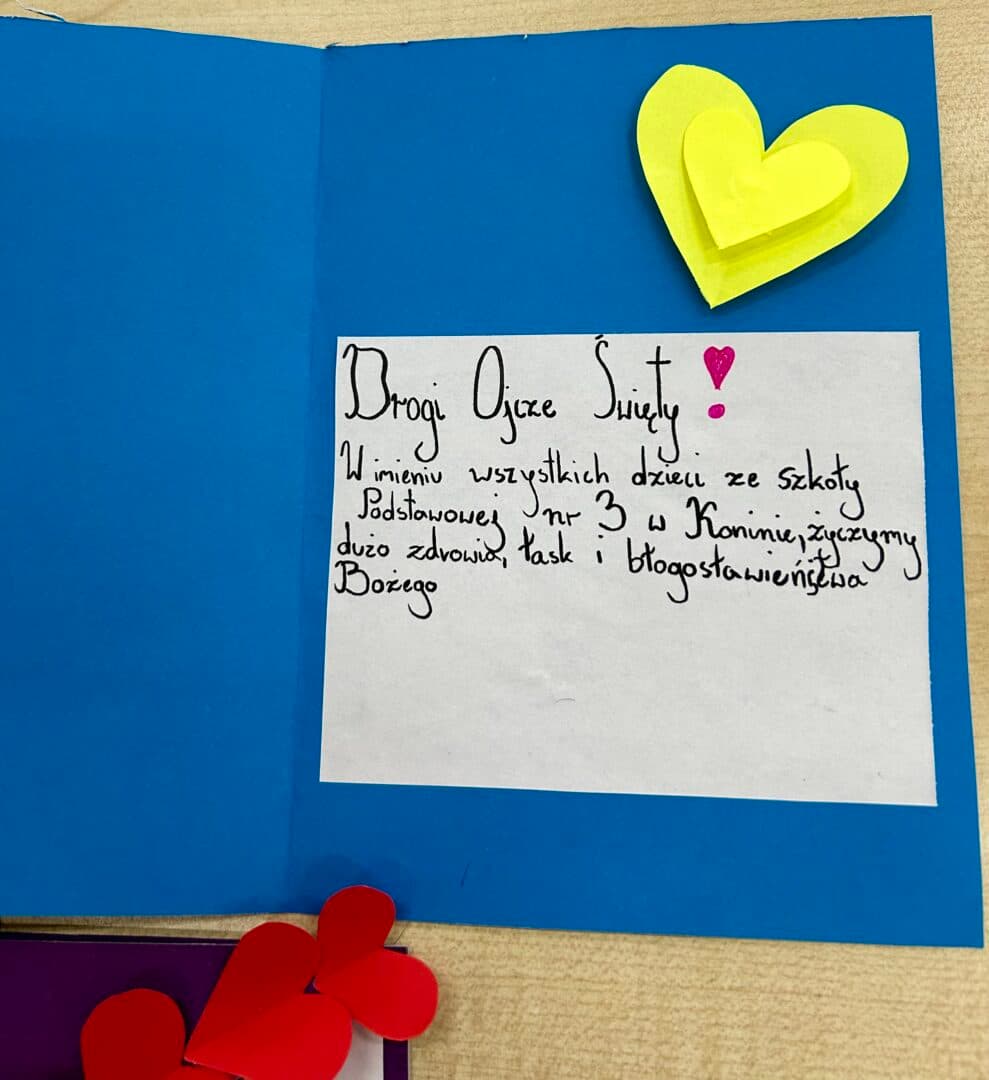 Drogi Ojcze Święty!
W imieniu wszystkich dzieci ze szkoły
Podstawowej nr 3 w Koninie, życzymy
dużo zdrowia, łask i błogosławieństwa
Bożego